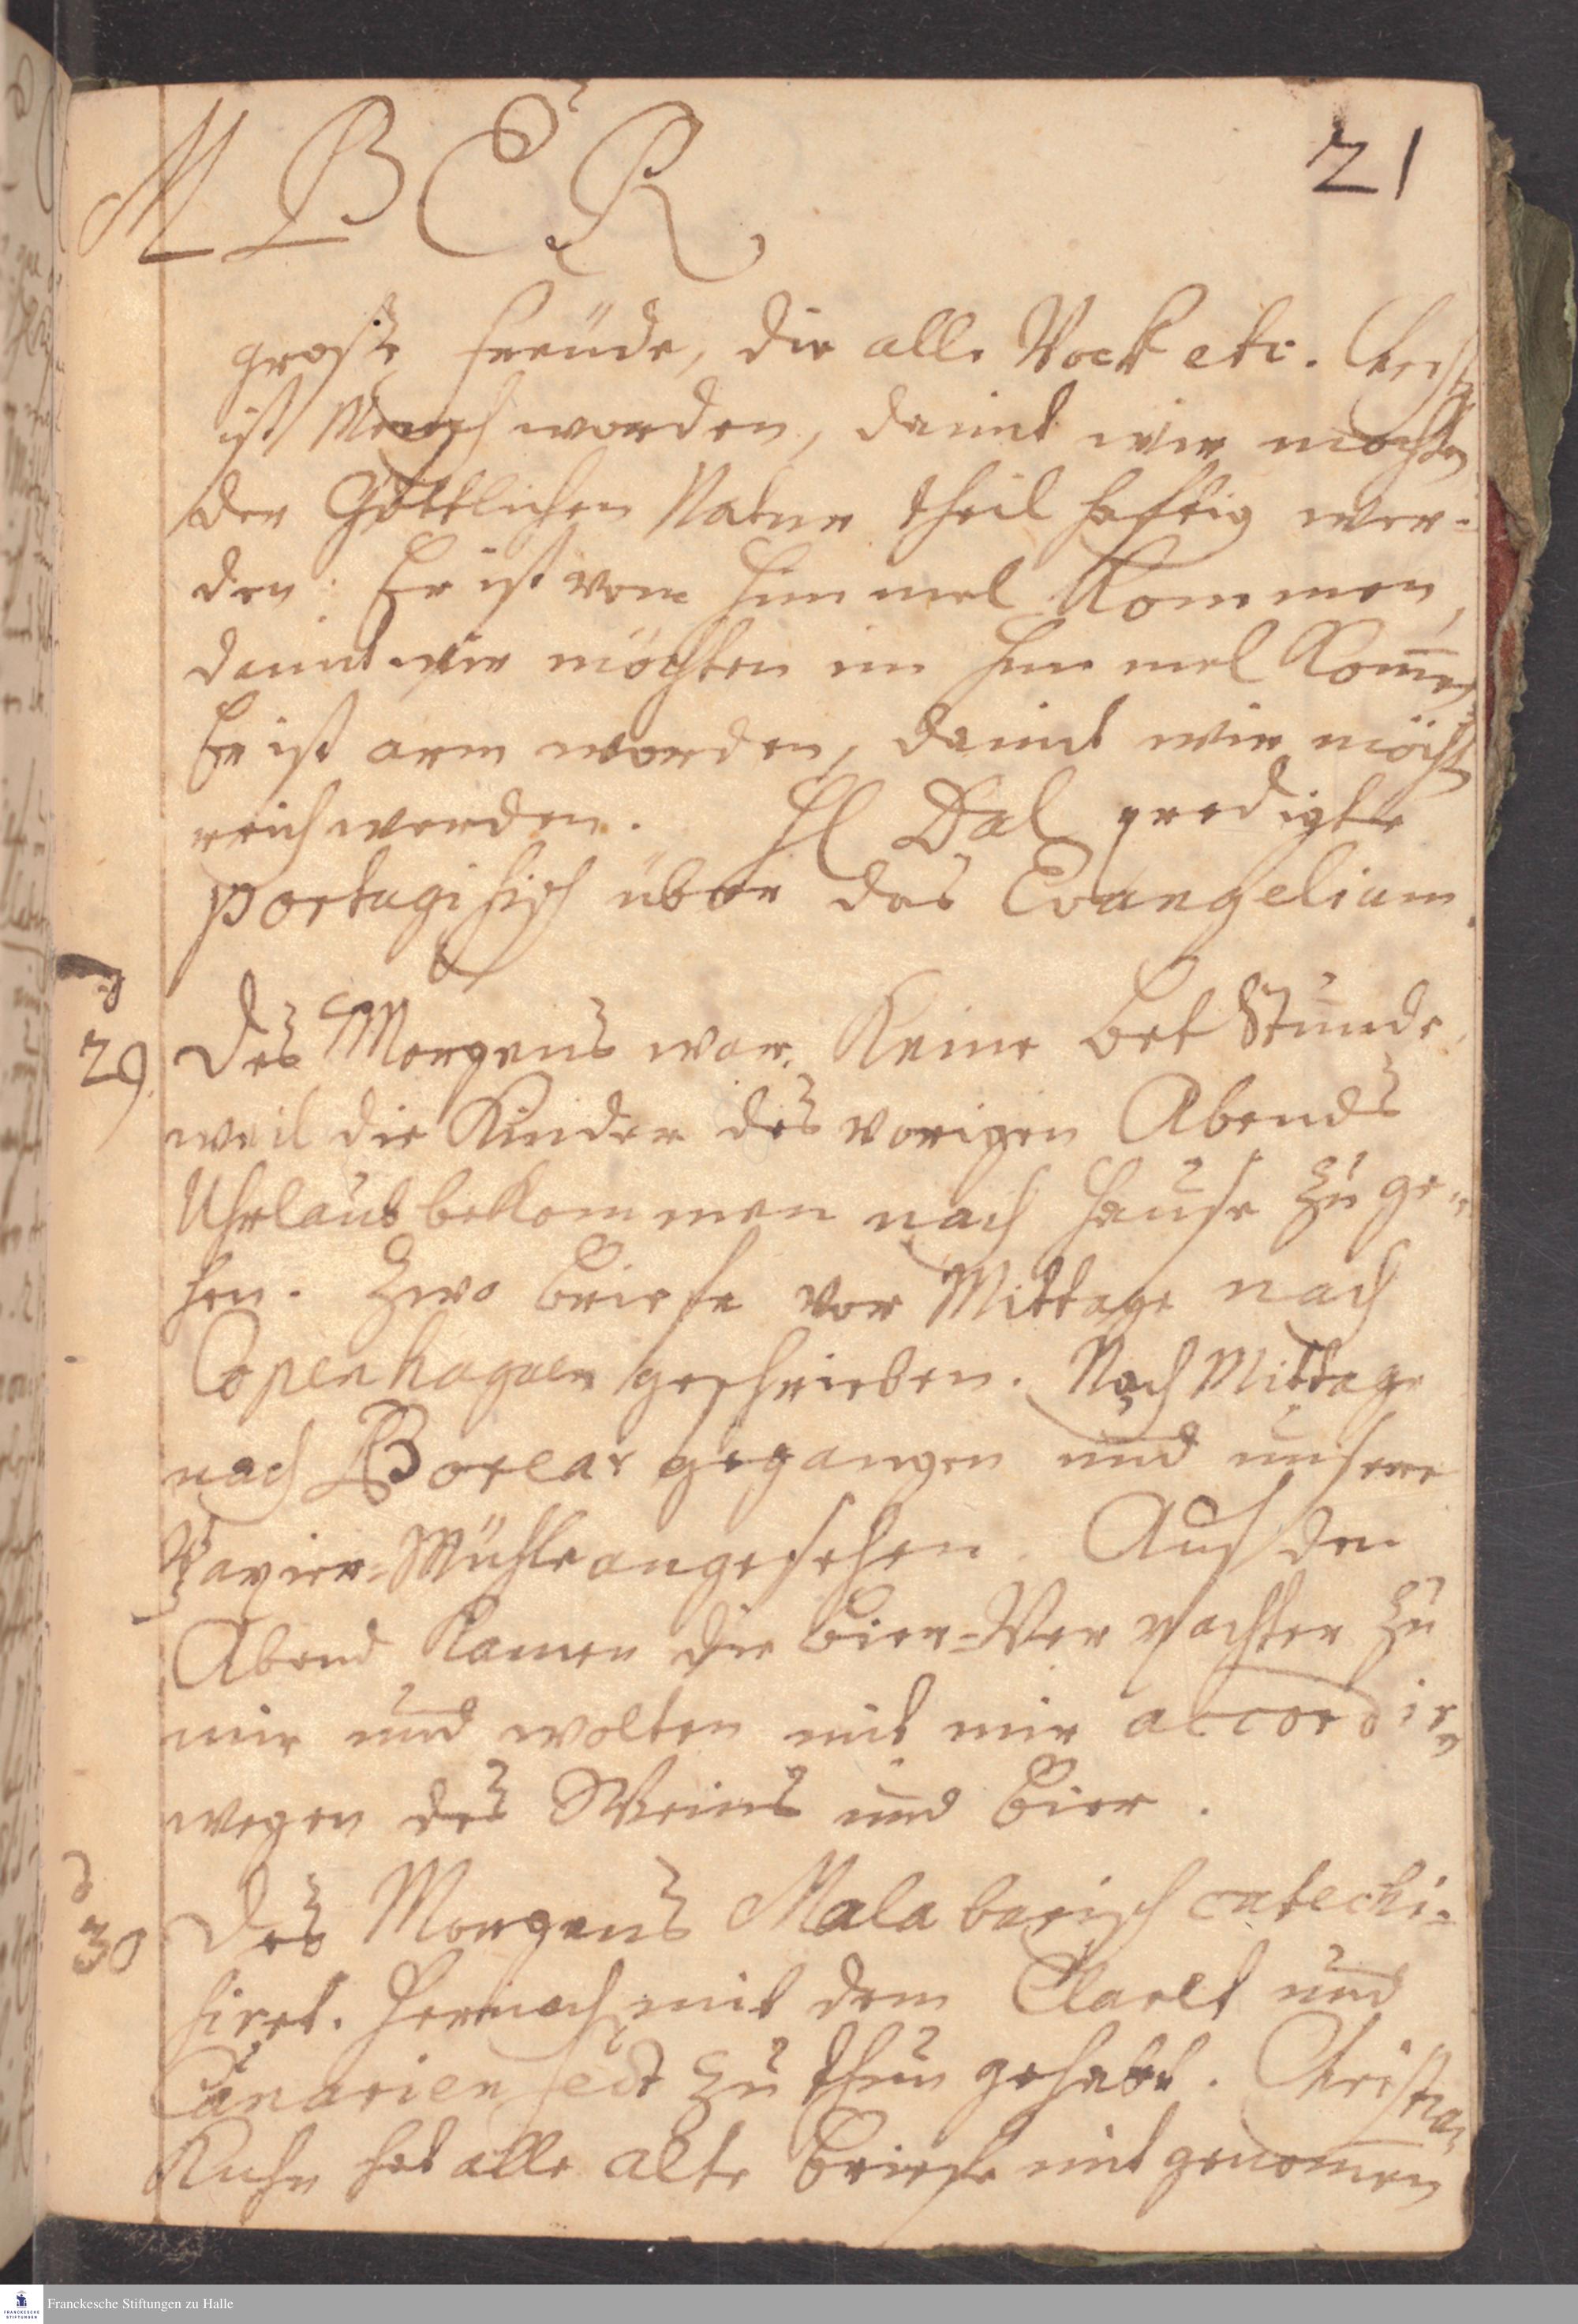 MBER
21
große Freüde, die alle Vock etc. Christ9
ist Mensch worden, damit wir mochten
der Göttlichen Natur theil hafftig wer-
den: Er ist vom Himmel kommen,
damit wir möchten im Himmel kom̅en
Er ist arm worden, damit wir möchten
reich werden. H Dal predigte
portugisisch über das Evangelium.
29. Des Morgens war keine Bet Stunde,
weil die Kinder des vorigen Abends
Uhrlaub bekommen nach Hause zu ge-
hen. Zwo Briefe vor Mittage nach
Copenhagen geschrieben. Nach Mittage
nach Borear gegangen und unsere
Papier-Mühle angesehen. Auf den
Abend kamen die Bier-Ver pachter zu
mir und wolten mit mir accordiren
wegen des Weins und Bier.
30 Des Morgens Malabarisch catechi-
siret. Hernach mit dem Claret und
Canarien sect zu thun gehabt. Christian
Kuhn hat alle alte Briefe mit genom̅en
Franckesche Stiftungen zu Halle